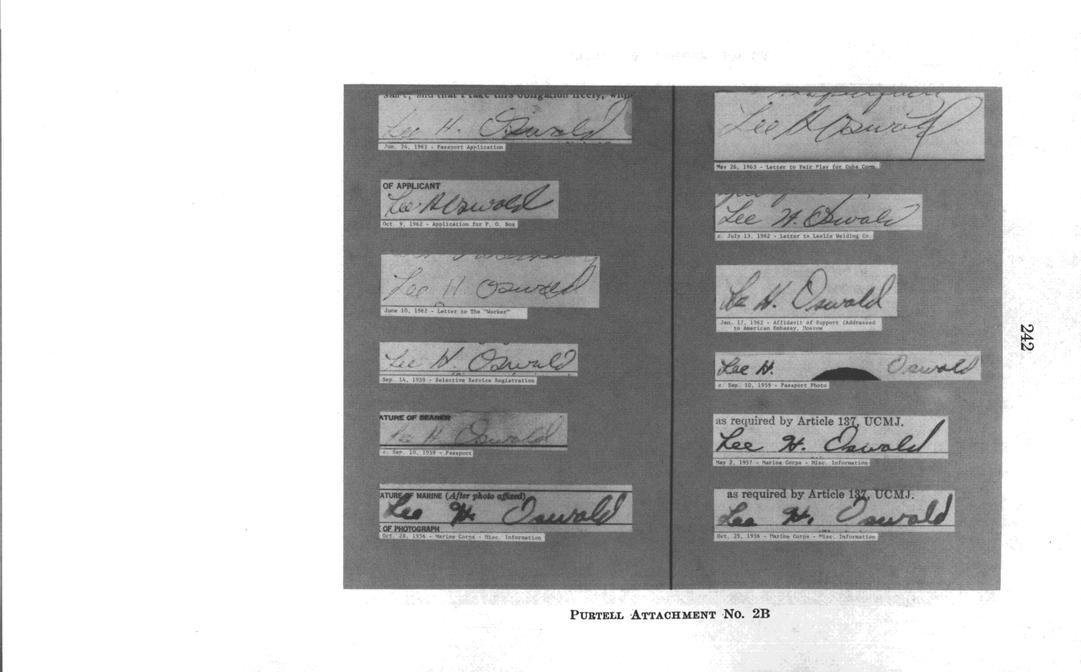 same, and that I take this obligation freely, with
Lee H. Oswald
Jun. 24, 1963 - Passport Application
OF APPLICANT
Lee H Oswald
Oct. 9, 1962 - Application for P. O. Box
Lee H. Oswald
June 10, 1962 - Letter to The "Worker"
Lee H. Oswald
Sep. 14, 1959 - Selective Service Registration
ATURE OF BEARER
Lee H. Oswald
c. Sep. 10, 1959 - Passport
ATURE OF MARINE (After photo affixed)
Lee H. Oswald
OF PHOTOGRAPH
Oct. 24, 1956 - Marine Corps - Misc. Information
Lee H Oswald
May 26, 1963 - Letter to Fair Play for Cuba Comm.
Lee H. Oswald
c. July 13, 1962 - Letter to Leslie Welding Co.
Lee H. Oswald
Jan. 17, 1962 - Affidavit of Support (Addressed
to American Embassy, Moscow
Lee H. Oswald
c. Sep. 10, 1959 - Passport Photo
as required by Article 137, UCMJ.
Lee H. Oswald
May 2, 1957 - Marine Corps - Misc. Information
as required by Article 137, UCMJ.
Lee H. Oswald
Oct. 25, 1956 - Marine Corps - Misc. Information
242
PURTELL ATTACHMENT NO. 2B